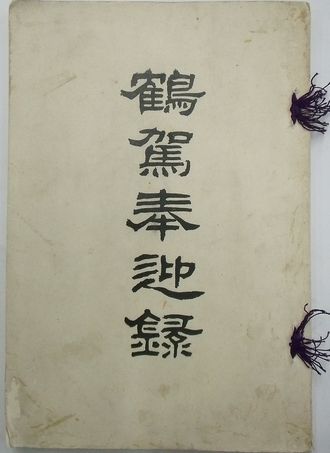 鶴駕奉迎録